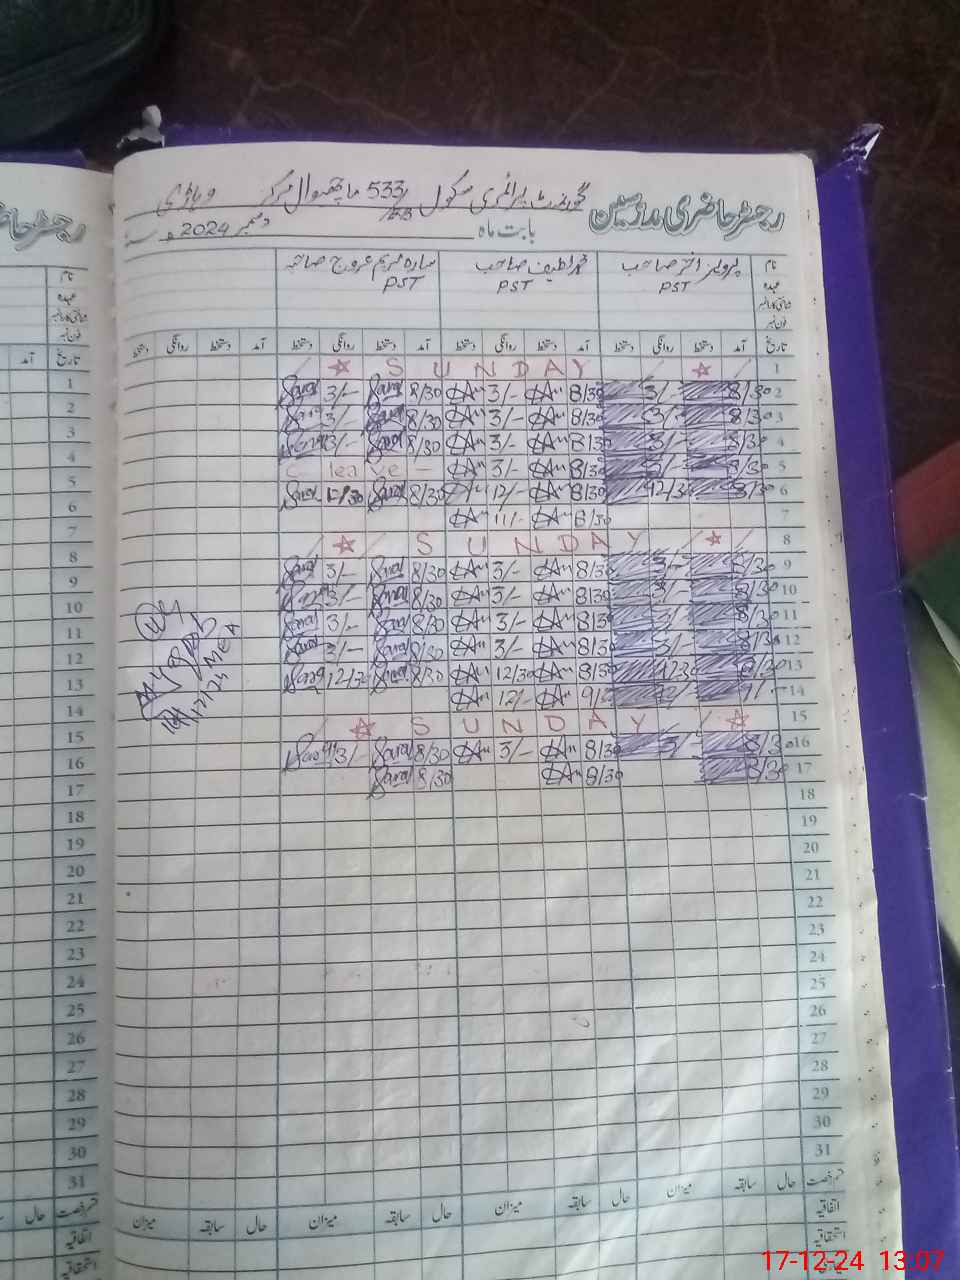 رجسٹر حاضری مدرسین گورنمنٹ پرائمری سکول 533/EB ماچھیوال مرکز وہاڑی
بابت ماہ دسمبر 2024
نام پرویز اختر صاحب محمد لطیف صاحب سارہ مریم عروج صاحبہ
عہدہ PST PST PST
تاریخ آمد دستخط روانگی دستخط آمد دستخط روانگی دستخط آمد دستخط روانگی دستخط آمد دستخط روانگی دستخط
1 SUNDAY
2 8/30 3/- 8/30 3/- 8/30 Sara 3/- Sara
3 8/30 3/- 8/30 3/- 8/30 Sara 3/- Sara
4 8/30 3/- 8/30 3/- 8/30 Sara 3/- Sara
5 8/30 3/- 8/30 3/- C-leave-
6 8/30 12/30 8/30 12/- 8/30 Sara 12/30 Sara
7 8/30 11/-
8 SUNDAY
9 8/30 3/- 8/30 3/- 8/30 Sara 3/- Sara
10 8/30 3/- 8/30 3/- 8/30 Sara 3/- Sara
11 8/30 3/- 8/30 3/- 8/30 Sara 3/- Sara
12 8/30 3/- 8/30 3/- 8/30 Sara 3/- Sara
13 8/30 12/30 8/30 12/30 8/30 Sara 12/30 Sara
14 9/- 12/- 9/- 12/-
15 SUNDAY
16 8/30 3/- 8/30 3/- 8/30 Sara 3/- Sara
17 8/30 8/30 8/30 Sara
18
19
20
21
22
23
24
25
26
27
28
29
30
31
قسم رخصت حال سابقہ میزان حال سابقہ میزان حال سابقہ میزان حال سابقہ میزان
اتفاقیہ
استحقاقیہ
MEA
رجسٹر حاضری
نام
عہدہ
تاریخ
آمد
1
2
3
4
5
6
7
8
9
10
11
12
13
14
15
16
17
18
19
20
21
22
23
24
25
26
27
28
29
30
31
قسم رخصت حال
اتفاقیہ
استحقاقیہ
17-12-24 13:07